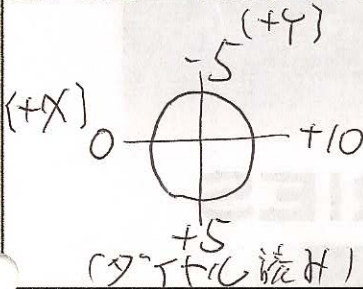 (+Y)
-5
(+X)
0
+10
+5
(ダイヤル読み)